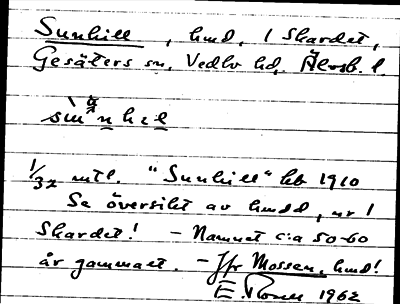 Sunhill, hmd, 1 Skardet,
Gesäters sn, Vedbo hd, Älvsb. l.
1/32 mtl. "Sunhill" kb 1910
Se översikt av hmdd, nr 1
Skardet! - Namnet c:a 50-60
år gammalt. - Jfr Mossen, hmd!
E. 1962